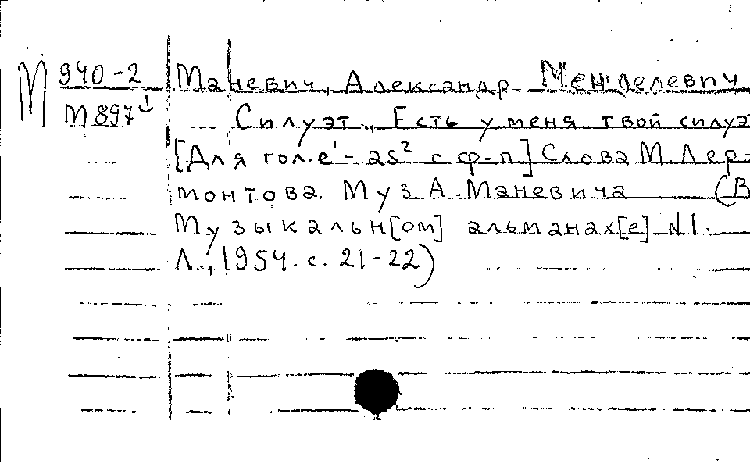 М 940-2 Маневич, Александр Менделевич
М897 Силуэт. Есть у меня твой силуэт
[Для гол. e¹-as² с ф-п] Слова М. Лер-
монтова. Муз. А. Маневича (В
Музыкальн[ом] альманах[е] №1.
Л., 1954. с. 21-22)